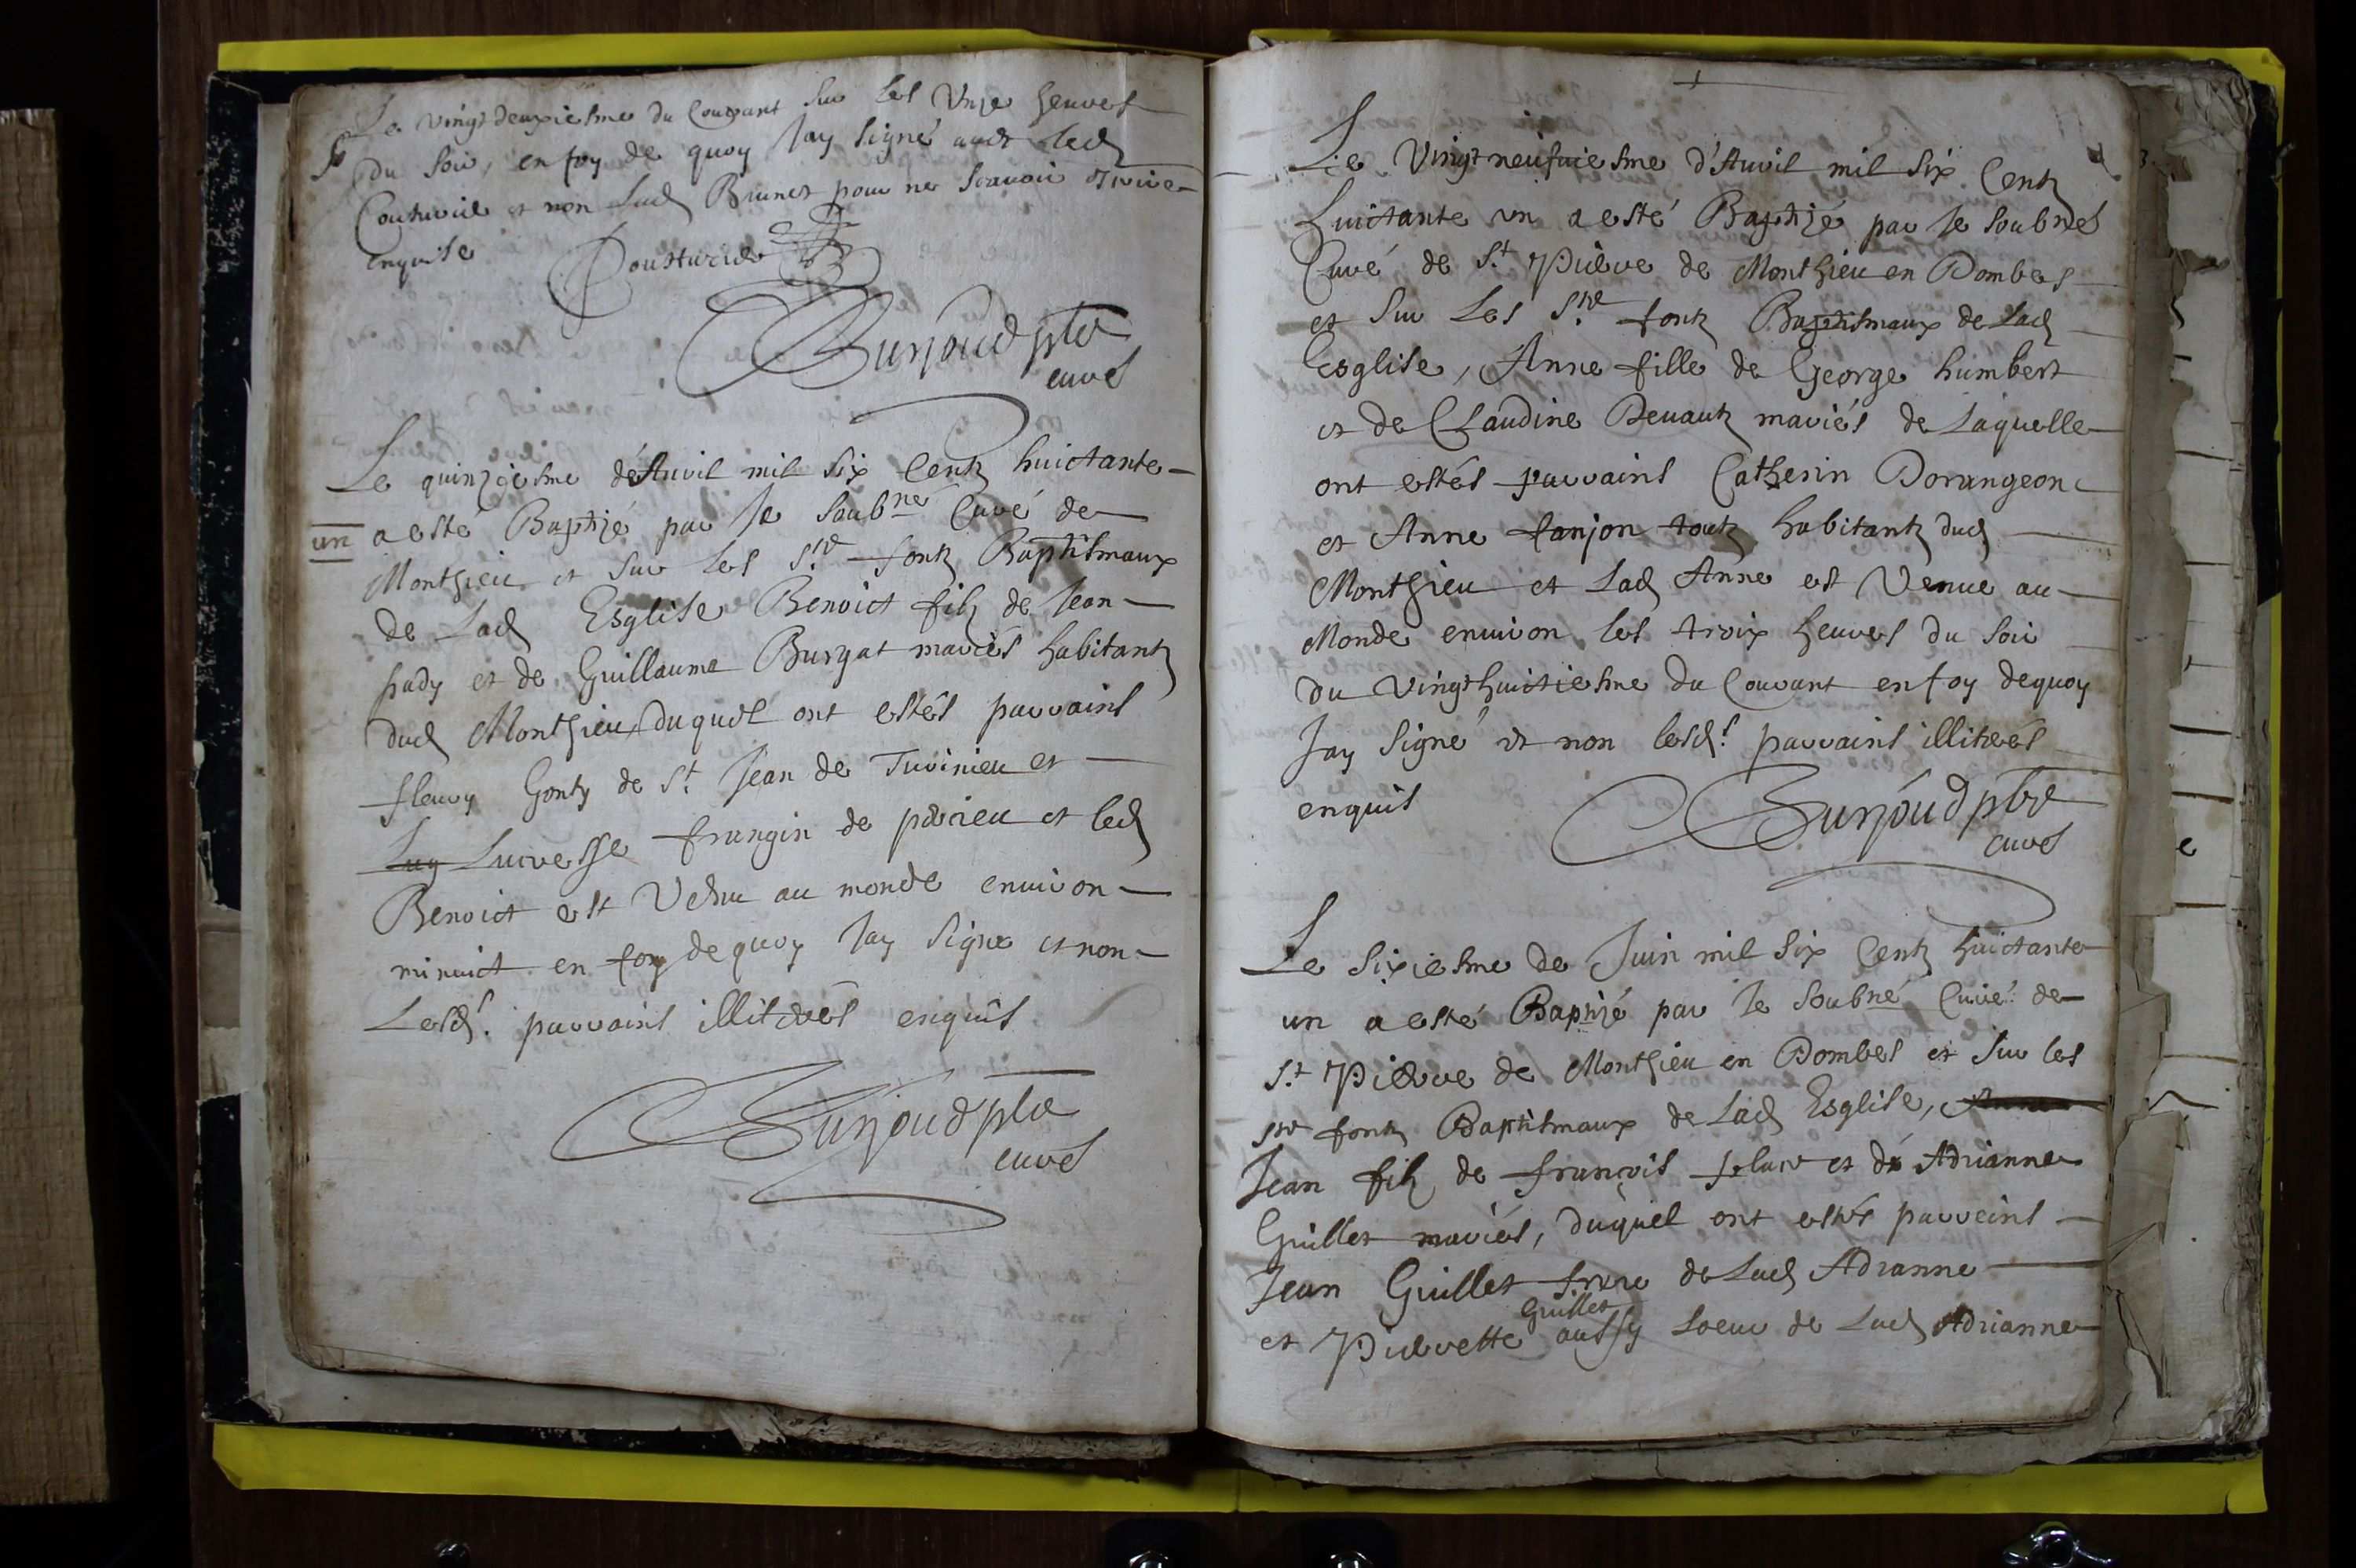 Le vingt deuxiesme du Courant sur les Unze heures
du soir, en foy de quoy Jay signé avec led
Cousturier et non lad Brunet pour ne scavoir escrire
enquise
Cousturier
Burjoud ptre
curé
Le quinziesme d'Auril mil six Centz huictante
un a esté Baptizé par Je soubné Curé de
Monthieu et sur les Stes fontz Baptismaux
de Lad Esglise Benoict filz de Jean
pady et de Guillaume Burgat mariés habitantz
dud Monthieu duquel ont estés parrains
fleury Gonty de St Jean de Turinieu et
Luy Lucresse frangin de perieu et led
Benoict est Venu au monde enuiron
minuict en foy de quoy Jay signe et non
Lesd. parrains illiterés enquis
Burjoud ptre
curé
Le Vingt neufuiesme d'Auril mil six Centz
huictante un a esté Baptizé par Je soubné
Curé de St Pierre de Monthieu en Dombes
et sur Les Stes fontz Baptismaux de Lad
Esglise, Anne fille de George humbert
et de Claudine Deuautz mariés de Laquelle
ont estés parrains Catherin Dorangeon
et Anne fanjon toutz habitantz dud
Monthieu et Lad Anne est Venue au
Monde enuiron les troix heures du soir
du Vingt huitiesme du Courant en foy dequoy
Jay signé et non lesd. parrains illiterés
enquis
Burjoud ptre
curé
Le sixiesme de Juin mil six Centz huictante
un a esté Baptizé par Je soubné Curé de
St Pierre de Monthieu en Dombes et sur les
Stes fontz Baptismaux de Lad Esglise, Anne
Jean filz de françois et de Adrianne
Guillet mariés, duquel ont estés parreins
Jean Guillet frere de Lad Adrianne
Guillet
et Pierrette aussy soeur de Lad Adrianne